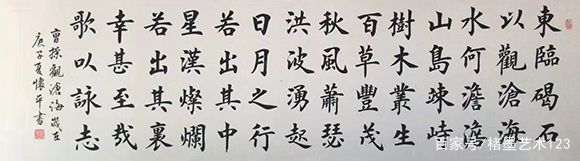 東臨碣石
以觀滄海
水何澹澹
山島竦峙
樹木叢生
百草豐茂
秋風蕭瑟
洪波湧起
日月之行
若出其中
星漢燦爛
若出其裏
幸甚至哉
歌以詠志
曹操觀滄海歲在
庚子夏懷平書
百家号/楮墨艺术123